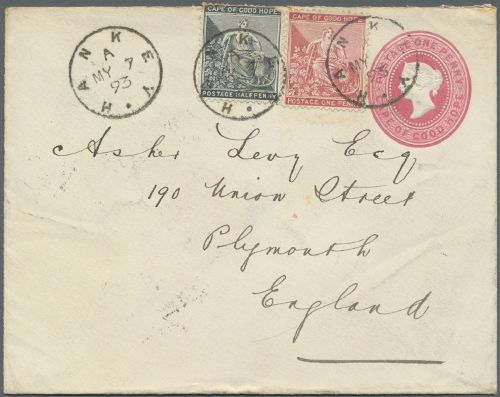 HANKEY
A
MY 7
93
CAPE OF GOOD HOPE
POSTAGE HALFPENNY
CAPE OF GOOD HOPE
POSTAGE ONE PENNY
HANKEY
HANKEY
A
MY
93
POSTAGE ONE PENNY
CAPE OF GOOD HOPE
Asher Levy Esq
190 Union Street
Plymouth
England